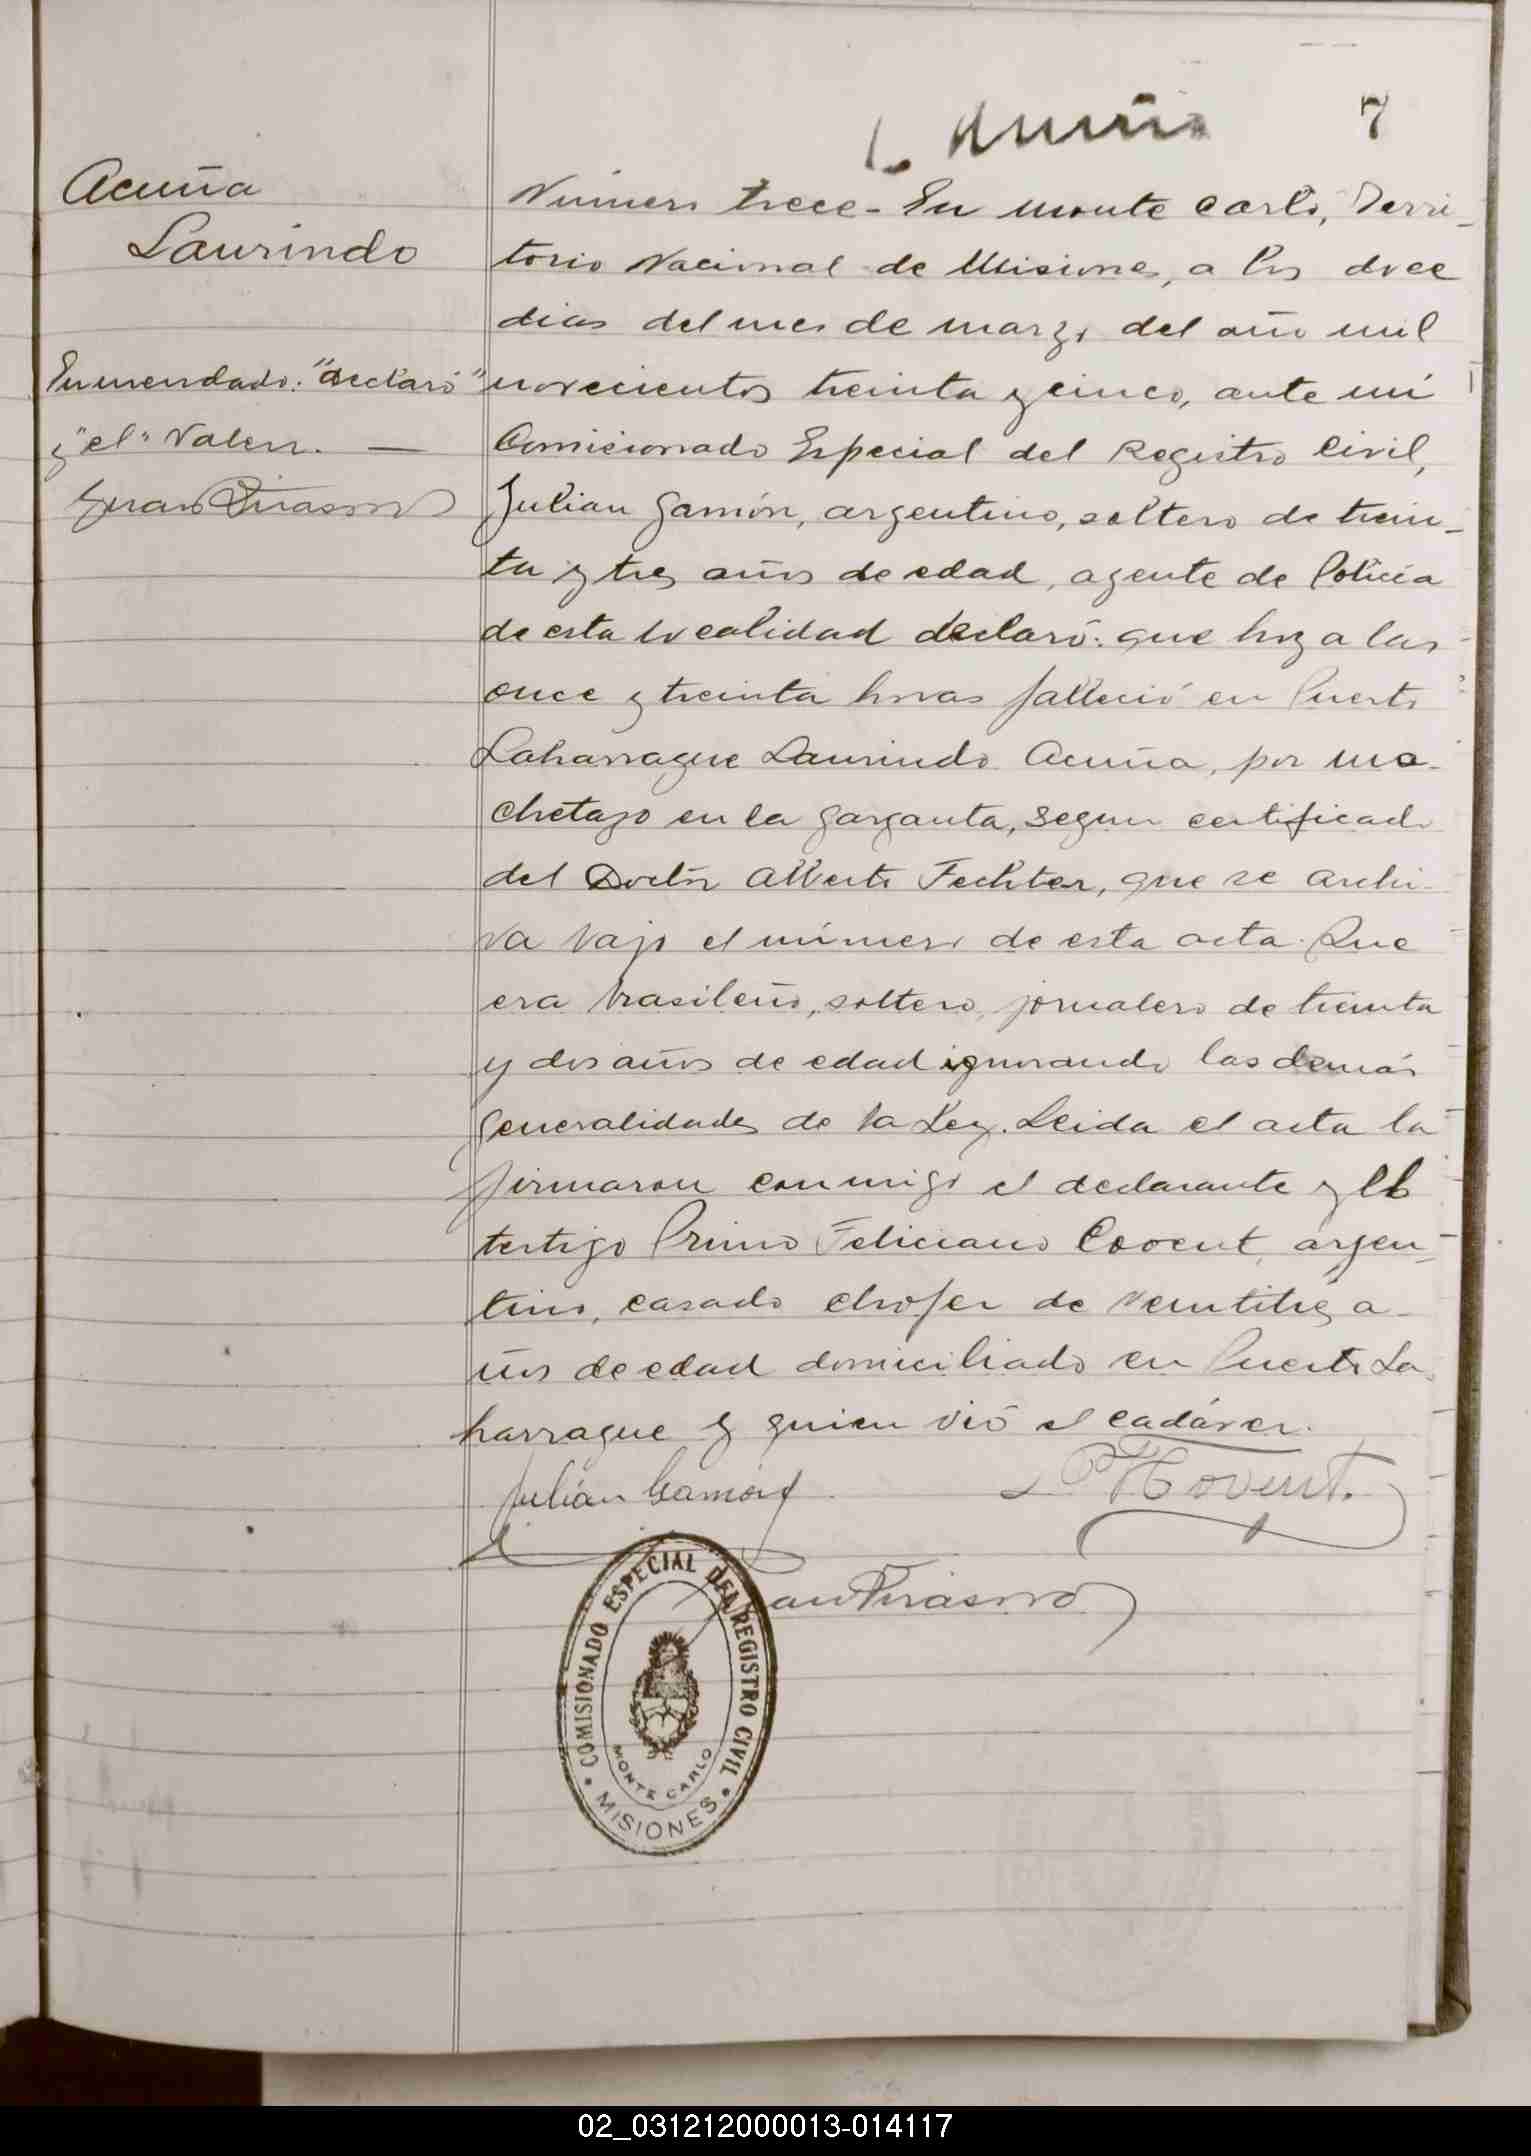 7
Acuña
Laurindo
Enmendado: "declaró"
y "el" Valen. —
Número trece - En Monte Carlo, Terri-
torio Nacional de Misiones, a los doce
dias del mes de marzo del año mil
novecientos treinta y cinco, ante mí
Comisionado Especial del Registro Civil,
Julian Gamón, argentino, soltero de trein-
ta y tres años de edad, agente de Policía
de esta localidad declaró: que hoy a las
once y treinta horas falleció en Puerto
Laharrague Laurindo Acuña, por ma-
chetazo en la garganta, segun certificado
del Doctor Alberto Fechter, que se archi-
va bajo el número de esta acta. Que
era brasileño, soltero, jornalero de treinta
y dos años de edad ignorando las demás
generalidades de la Ley. Leida el acta la
firmaron conmigo el declarante y el
testigo Primo Feliciano Covent, argen-
tino, casado chofer de veintitres a-
ños de edad domiciliado en Puerto La
harrague y quien vió el cadáver.
Julián Gamón
Covent.
COMISIONADO ESPECIAL DEL REGISTRO CIVIL
MONTE CARLO
MISIONES
02_031212000013-014117